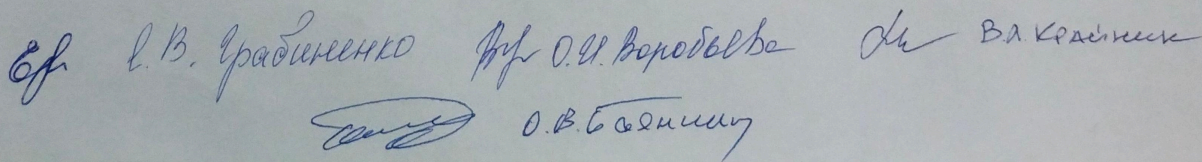 Е.В. Грабиненко О.И. Воробьева В.А. Крайник
О.В. Баянкин